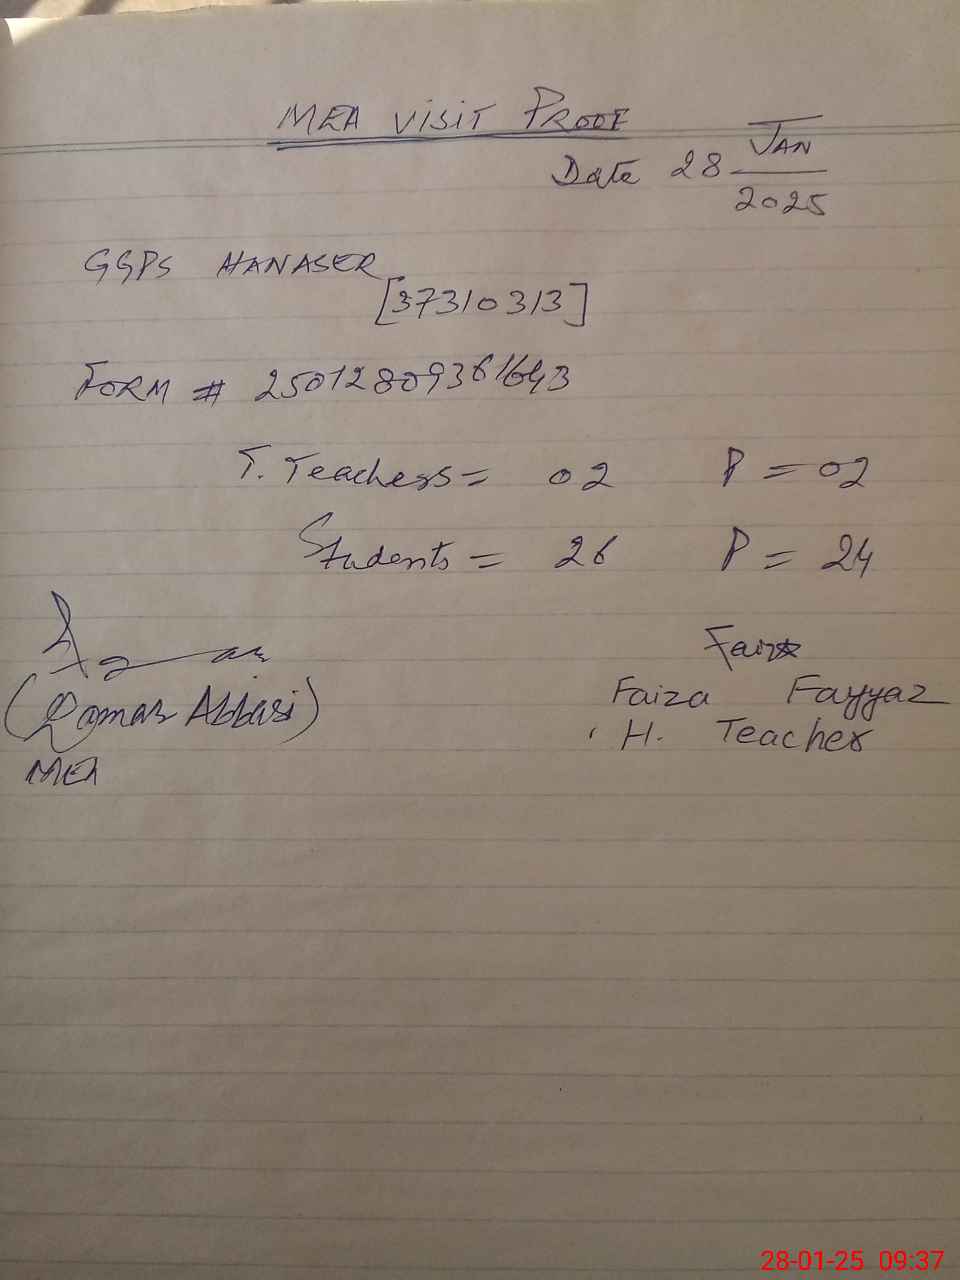 MEA VISIT PROOF
Date 28 JAN
2025
GGPS MANASER
[37310313]
FORM # 25012809361643
T. Teachers = 02 P = 02
Students = 26 P = 24
Faiza
Faiza Fayyaz
(Qamar Abbasi)
H. Teacher
MEA
28-01-25 09:37